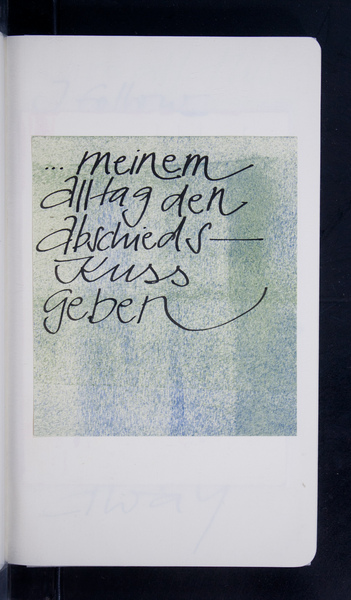 ... meinem
alltag den
abschieds—
Kuss
geben